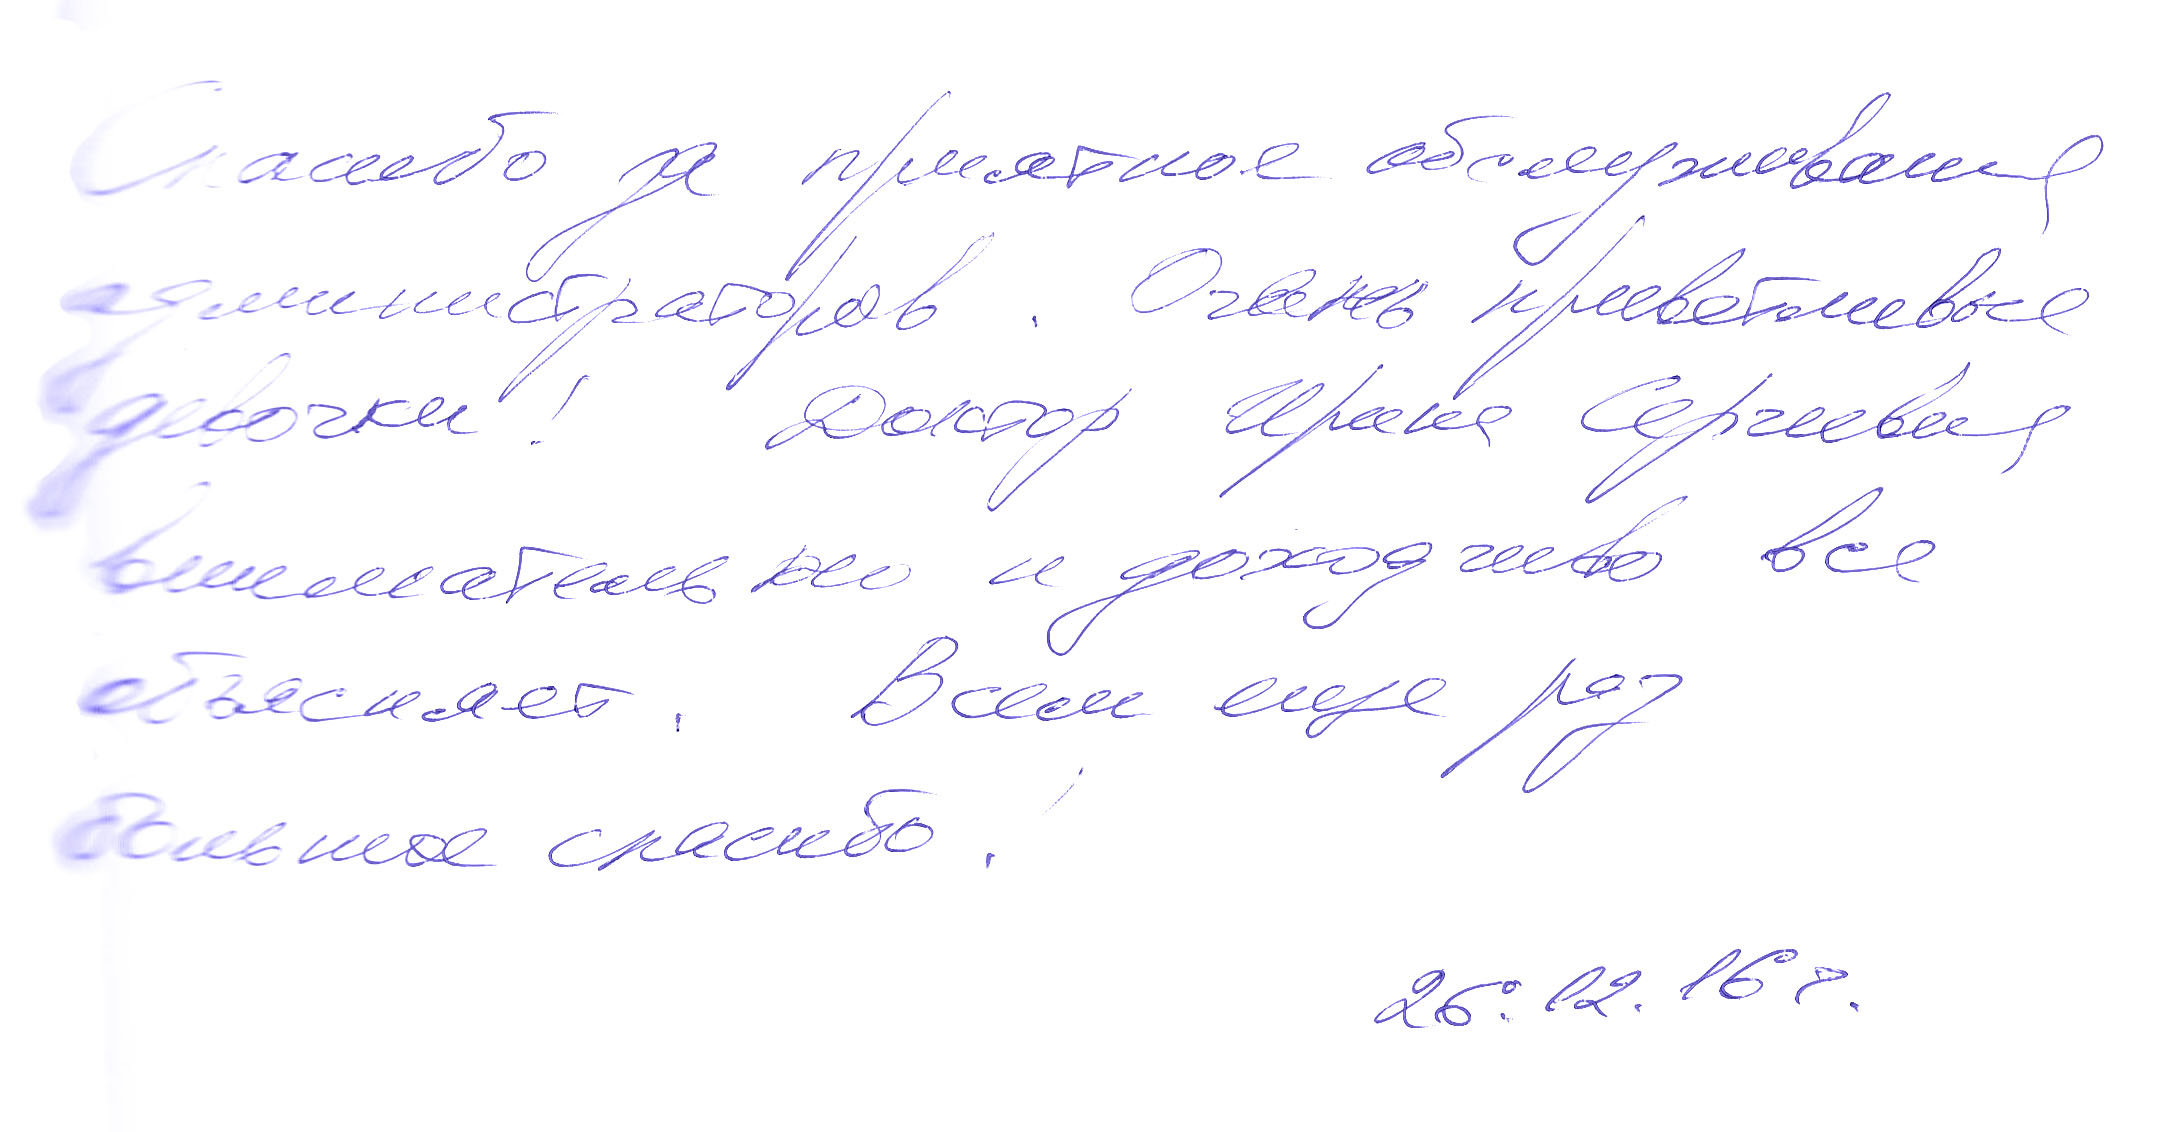 Спасибо за приятное обслуживание
администраторов. Очень приветливые
девочки! Доктор Ирина Сергиевна
внимательно и доходчиво все
объясняет. Всем еще раз
большое спасибо!
26.12.16 г.